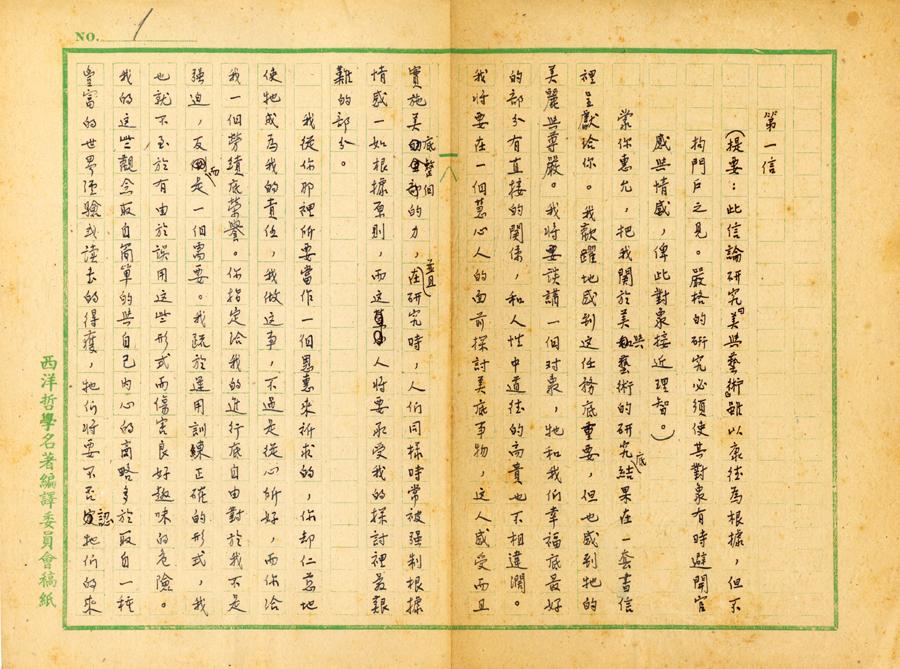 NO. 1
第一信
(提要：此信論研究美與藝術，雖以康德為根據，但不
拘門戶之見。嚴格的研究必須使其對象有時避開官
感與情感，俾此對象接近理智。)
蒙你惠允，把我關於美與藝術的研究底結果在一套書信
裡呈獻給你。我歡躍地感到這任務底重要，但也感到牠的
美麗與尊嚴。我將要談講一個对象，牠和我们幸福底最好
的部分有直接的關係，和人性中道德的高貴也不相違濶。
我將要在一個慧心人的面前探討美底事物，這人感受而且
實施美底整個的力，並且在研究時，人们同樣時常被强制根據
情感一如根據原則，而這人將要承受我的探討裡最艱
難的部分。
我從你那裡所要當作一個恩惠來祈求的，你却仁慈地
使牠成為我的責任，我做這事，不過是從心所好，而你給
我一個勞績底榮譽。你指定給我的進行底自由對於我不是
强迫，反而是一個需要。我既於運用訓練正確的形式，我
也就不至於有由於誤用這些形式而傷害良好趣味的危險。
我的這些觀念取自簡單的與自己内心的商略多於取自一種
豐富的世界經驗或讀去的得穫，牠们將要不否認牠们的來
西洋哲學名著編譯委員會稿紙